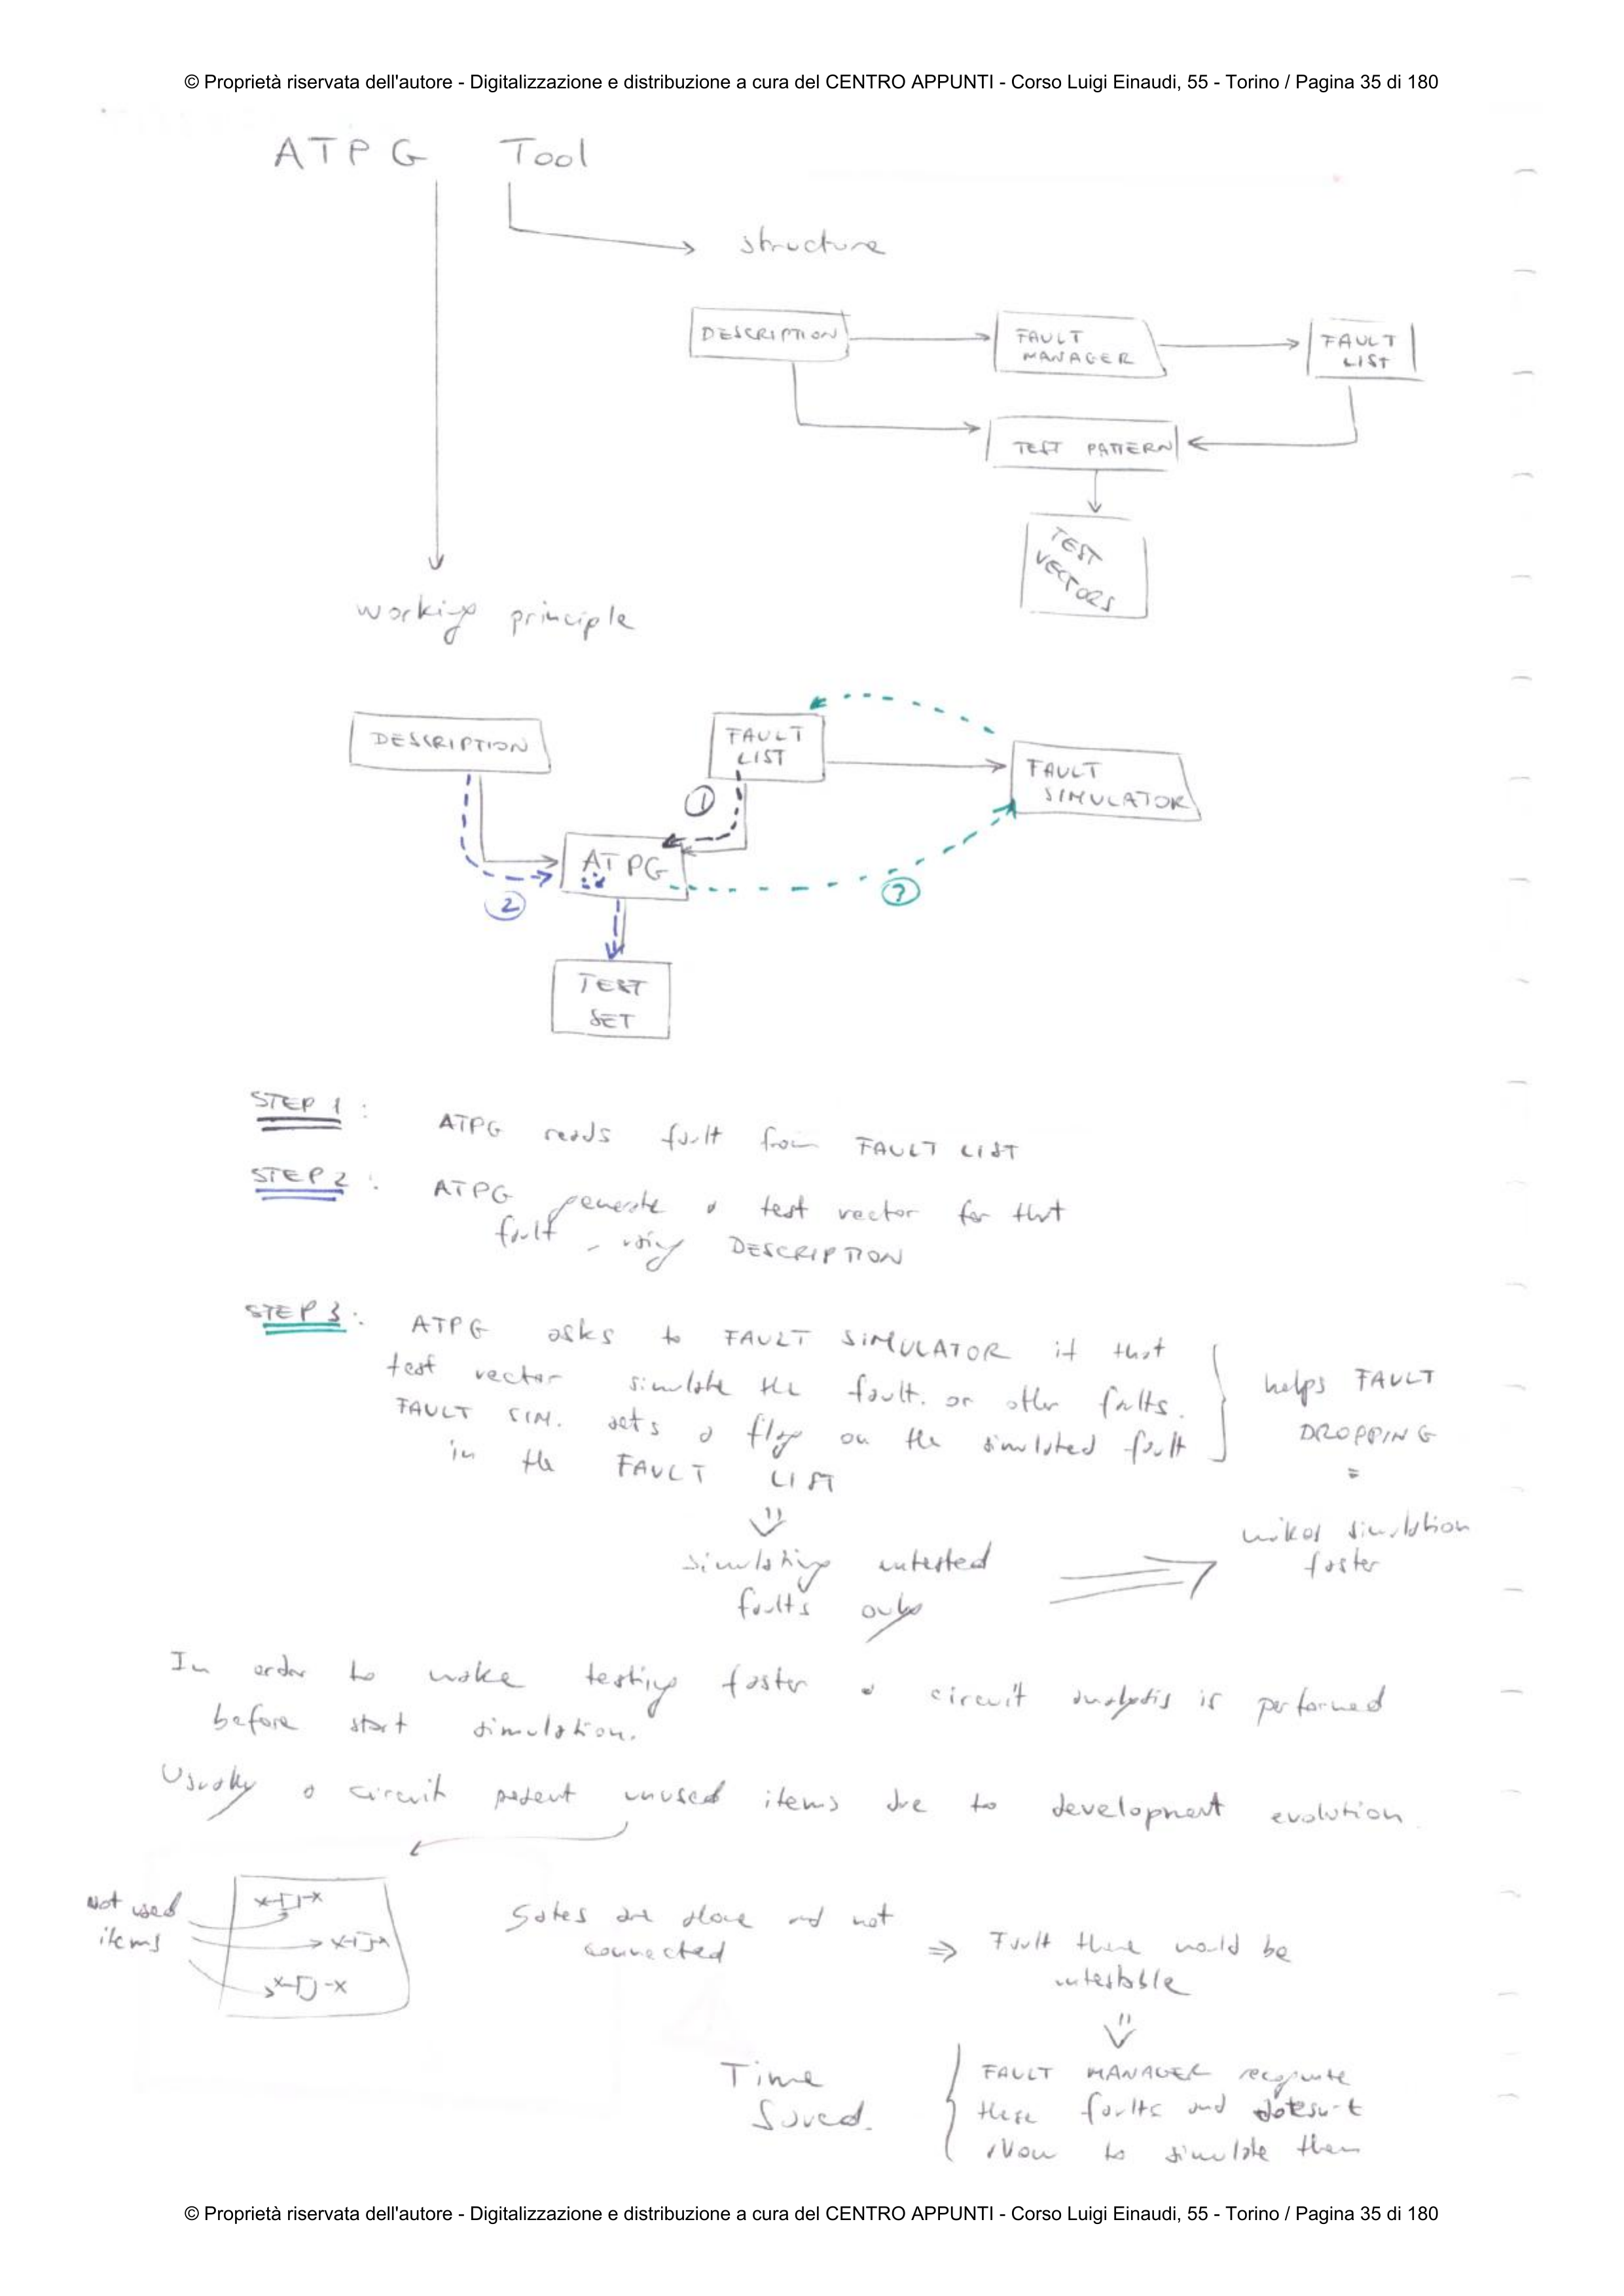 © Proprietà riservata dell'autore - Digitalizzazione e distribuzione a cura del CENTRO APPUNTI - Corso Luigi Einaudi, 55 - Torino / Pagina 35 di 180
ATPG Tool
structure
DESCRIPTION
FAULT
MANAGER
FAULT
LIST
TEST PATTERN
TEST
VECTORS
working principle
DESCRIPTION
FAULT
LIST
FAULT
SIMULATOR
1
ATPG
2
TEST
SET
STEP 1 :
ATPG reads fault from FAULT LIST
STEP 2 :
ATPG generate a test vector for that
fault, using DESCRIPTION
STEP 3 :
ATPG asks to FAULT SIMULATOR if that
test vector simulate the fault. or other faults.
FAULT SIM. sets a flag on the simulated fault
in the FAULT LIST
helps FAULT
DROPPING
=
makes simulation
faster
simulating untested
faults only
In order to make testing faster a circuit analysis is performed
before start simulation.
Usually a circuit unused items due to development evolution.
Not used
items
x-[]-x
x-[]-x
x-[]-x
Gates are alone and not
connected
⇒ Fault there would be
untestable
Time
Saved.
FAULT MANAGER
these faults and doesn't
to simulate them
© Proprietà riservata dell'autore - Digitalizzazione e distribuzione a cura del CENTRO APPUNTI - Corso Luigi Einaudi, 55 - Torino / Pagina 35 di 180